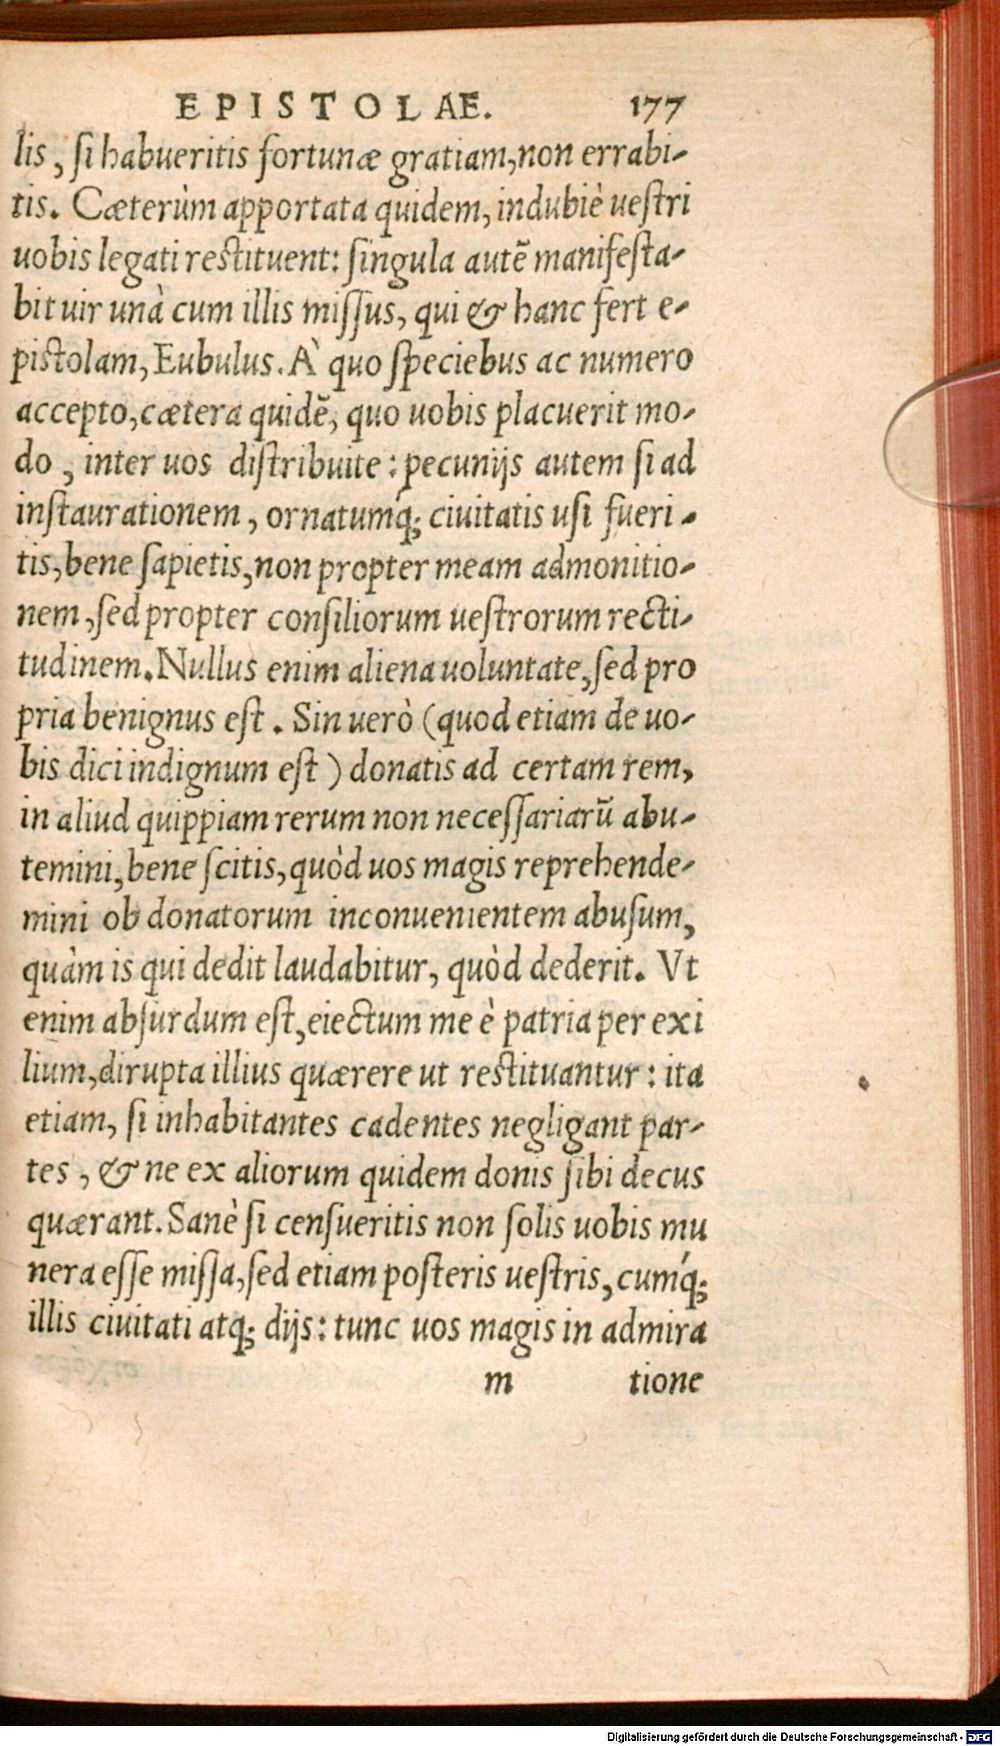 EPISTOLAE. 177
lis, ſi habueritis fortunæ gratiam, non errabi-
tis. Cæterùm apportata quidem, indubiè ueſtri
uobis legati reſtituent: ſingula autē manifeſta-
bit uir unà cum illis miſſus, qui & hanc fert e-
piſtolam, Eubulus. À quo ſpeciebus ac numero
accepto, cætera quidē, quo uobis placuerit mo-
do, inter uos diſtribuite: pecunijs autem ſi ad
inſtaurationem, ornatumq́; ciuitatis uſi fueri-
tis, bene ſapietis, non propter meam admonitio-
nem, ſed propter conſiliorum ueſtrorum recti-
tudinem. Nullus enim aliena uoluntate, ſed pro
pria benignus eſt. Sin uerò (quod etiam de uo-
bis dici indignum eſt) donatis ad certam rem,
in aliud quippiam rerum non neceſſariarū abu-
temini, bene ſcitis, quòd uos magis reprehende-
mini ob donatorum inconuenientem abuſum,
quàm is qui dedit laudabitur, quòd dederit. Vt
enim abſurdum eſt, eiectum me è patria per exi
lium, dirupta illius quærere ut reſtituantur: ita
etiam, ſi inhabitantes cadentes negligant par-
tes, & ne ex aliorum quidem donis ſibi decus
quærant. Sanè ſi cenſueritis non ſolis uobis mu
nera eſſe miſſa, ſed etiam poſteris ueſtris, cumq́;
illis ciuitati atq; dijs: tunc uos magis in admira
m tione
Digitalisierung gefördert durch die Deutsche Forschungsgemeinschaft - DFG